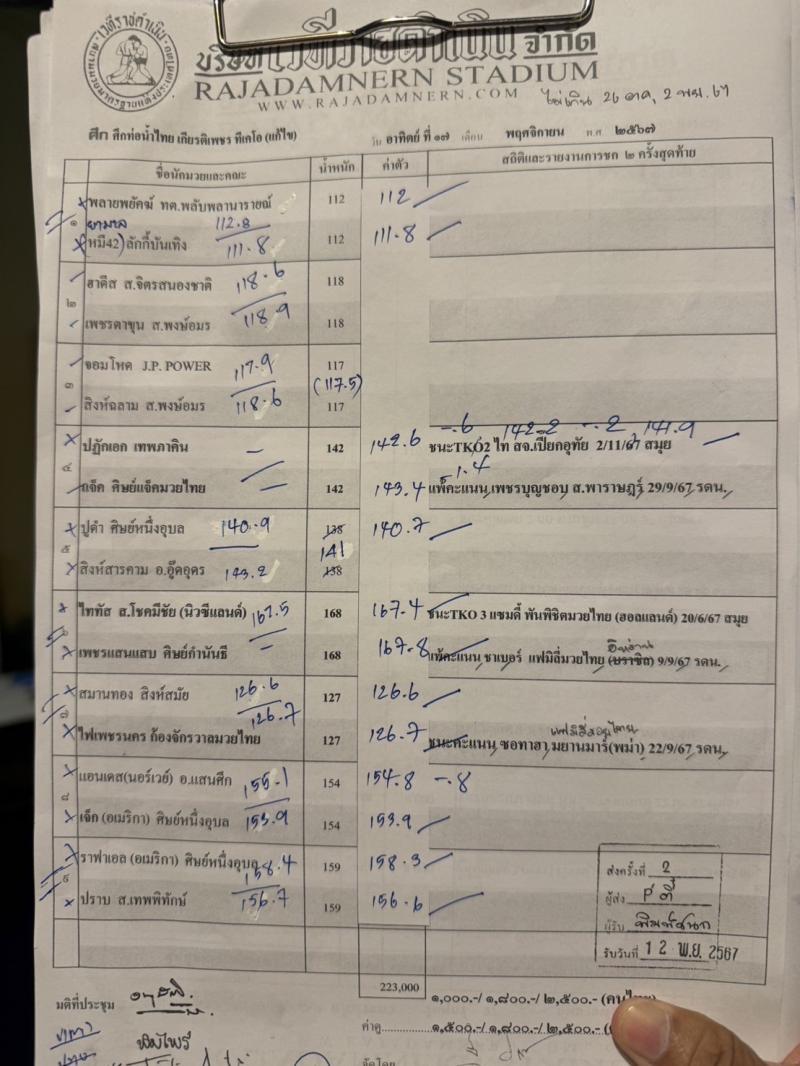 บริษัทเวทีราชดำเนิน จำกัด
RAJADAMNERN STADIUM
WWW.RAJADAMNERN.COM
ไม่เกิน 26 ตค, 2 พย. 67
ศึก ศึกท่อน้ำไทย เกียรติเพชร ทีเคโอ (แก้ไข) วัน อาทิตย์ ที่ ๑๗ เดือน พฤศจิกายน พ.ศ. ๒๕๖๗
ชื่อนักมวยและคณะ น้ำหนัก ค่าตัว สถิติและรายงานการชก ๒ ครั้งสุดท้าย
พลายพยัคฆ์ ทต.พลับพลานารายณ์ 112 112
๑ 112.8
(หมี42) ลักกี้บันเทิง 111.8 112 111.8
ฮาดีส ส.จิตรสนองชาติ 118.6 118
๒
เพชรดาขุน ส.พงษ์อมร 118.9 118
จอมโหด J.P. POWER 117.9 117
๓ (117.5)
สิงห์ฉลาม ส.พงษ์อมร 118.6 117
-.6 142.2 -.2 141.9
ปฏักเอก เทพภาคิน - 142 142.6 ชนะTKO2 ไท สจ.เปี๊ยกอุทัย 2/11/67 สมุย
๔ -1.4
แจ็ค ศิษย์แจ็คมวยไทย - 142 143.4 แพ้คะแนน เพชรบุญชอบ ส.พาราษฎร์ 29/9/67 รดน.
ปูดำ ศิษย์หนึ่งอุบล 140.9 138 140.7
๕ 141
สิงห์สารคาม อ.อู๊ดอุดร 143.2 138
ไททัส ส.โชคมีชัย (นิวซีแลนด์) 167.5 168 167.4 ชนะTKO 3 แซมดี้ พันพิชิตมวยไทย (ฮอลแลนด์) 20/6/67 สมุย
๖
เพชรแสนแสบ ศิษย์กำนันธี - 168 167.8 แพ้คะแนน ชาเบอร์ แฟมิลี่มวยไทย (บราซิล) 9/9/67 รดน.
สมานทอง สิงห์สมัย 126.6 127 126.6
๗ 126.7
ไฟเพชรนคร ก้องจักรวาลมวยไทย 127 126.7 ชนะคะแนน ซอทาฮา มยานมาร์(พม่า) 22/9/67 รดน.
แอนเดส(นอร์เวย์) อ.แสนศึก 155.1 154 154.8 -.8
๘
เจ็ก (อเมริกา) ศิษย์หนึ่งอุบล 153.9 154 153.9
ราฟาเอล (อเมริกา) ศิษย์หนึ่งอุบล 158.4 159 158.3
๙
ปราบ ส.เทพพิทักษ์ 156.7 159 156.6
ส่งครั้งที่ 2
ผู้ส่ง
ผู้รับ
รับวันที่ 12 พ.ย. 2567
223,000
มติที่ประชุม
๑,๐๐๐.-/ ๑,๘๐๐/ ๒,๕๐๐.- (คนไทย)
ค่าคู่ ๑,๕๐๐.-/ ๑,๘๐๐/ ๒,๕๐๐.-
จัดโดย